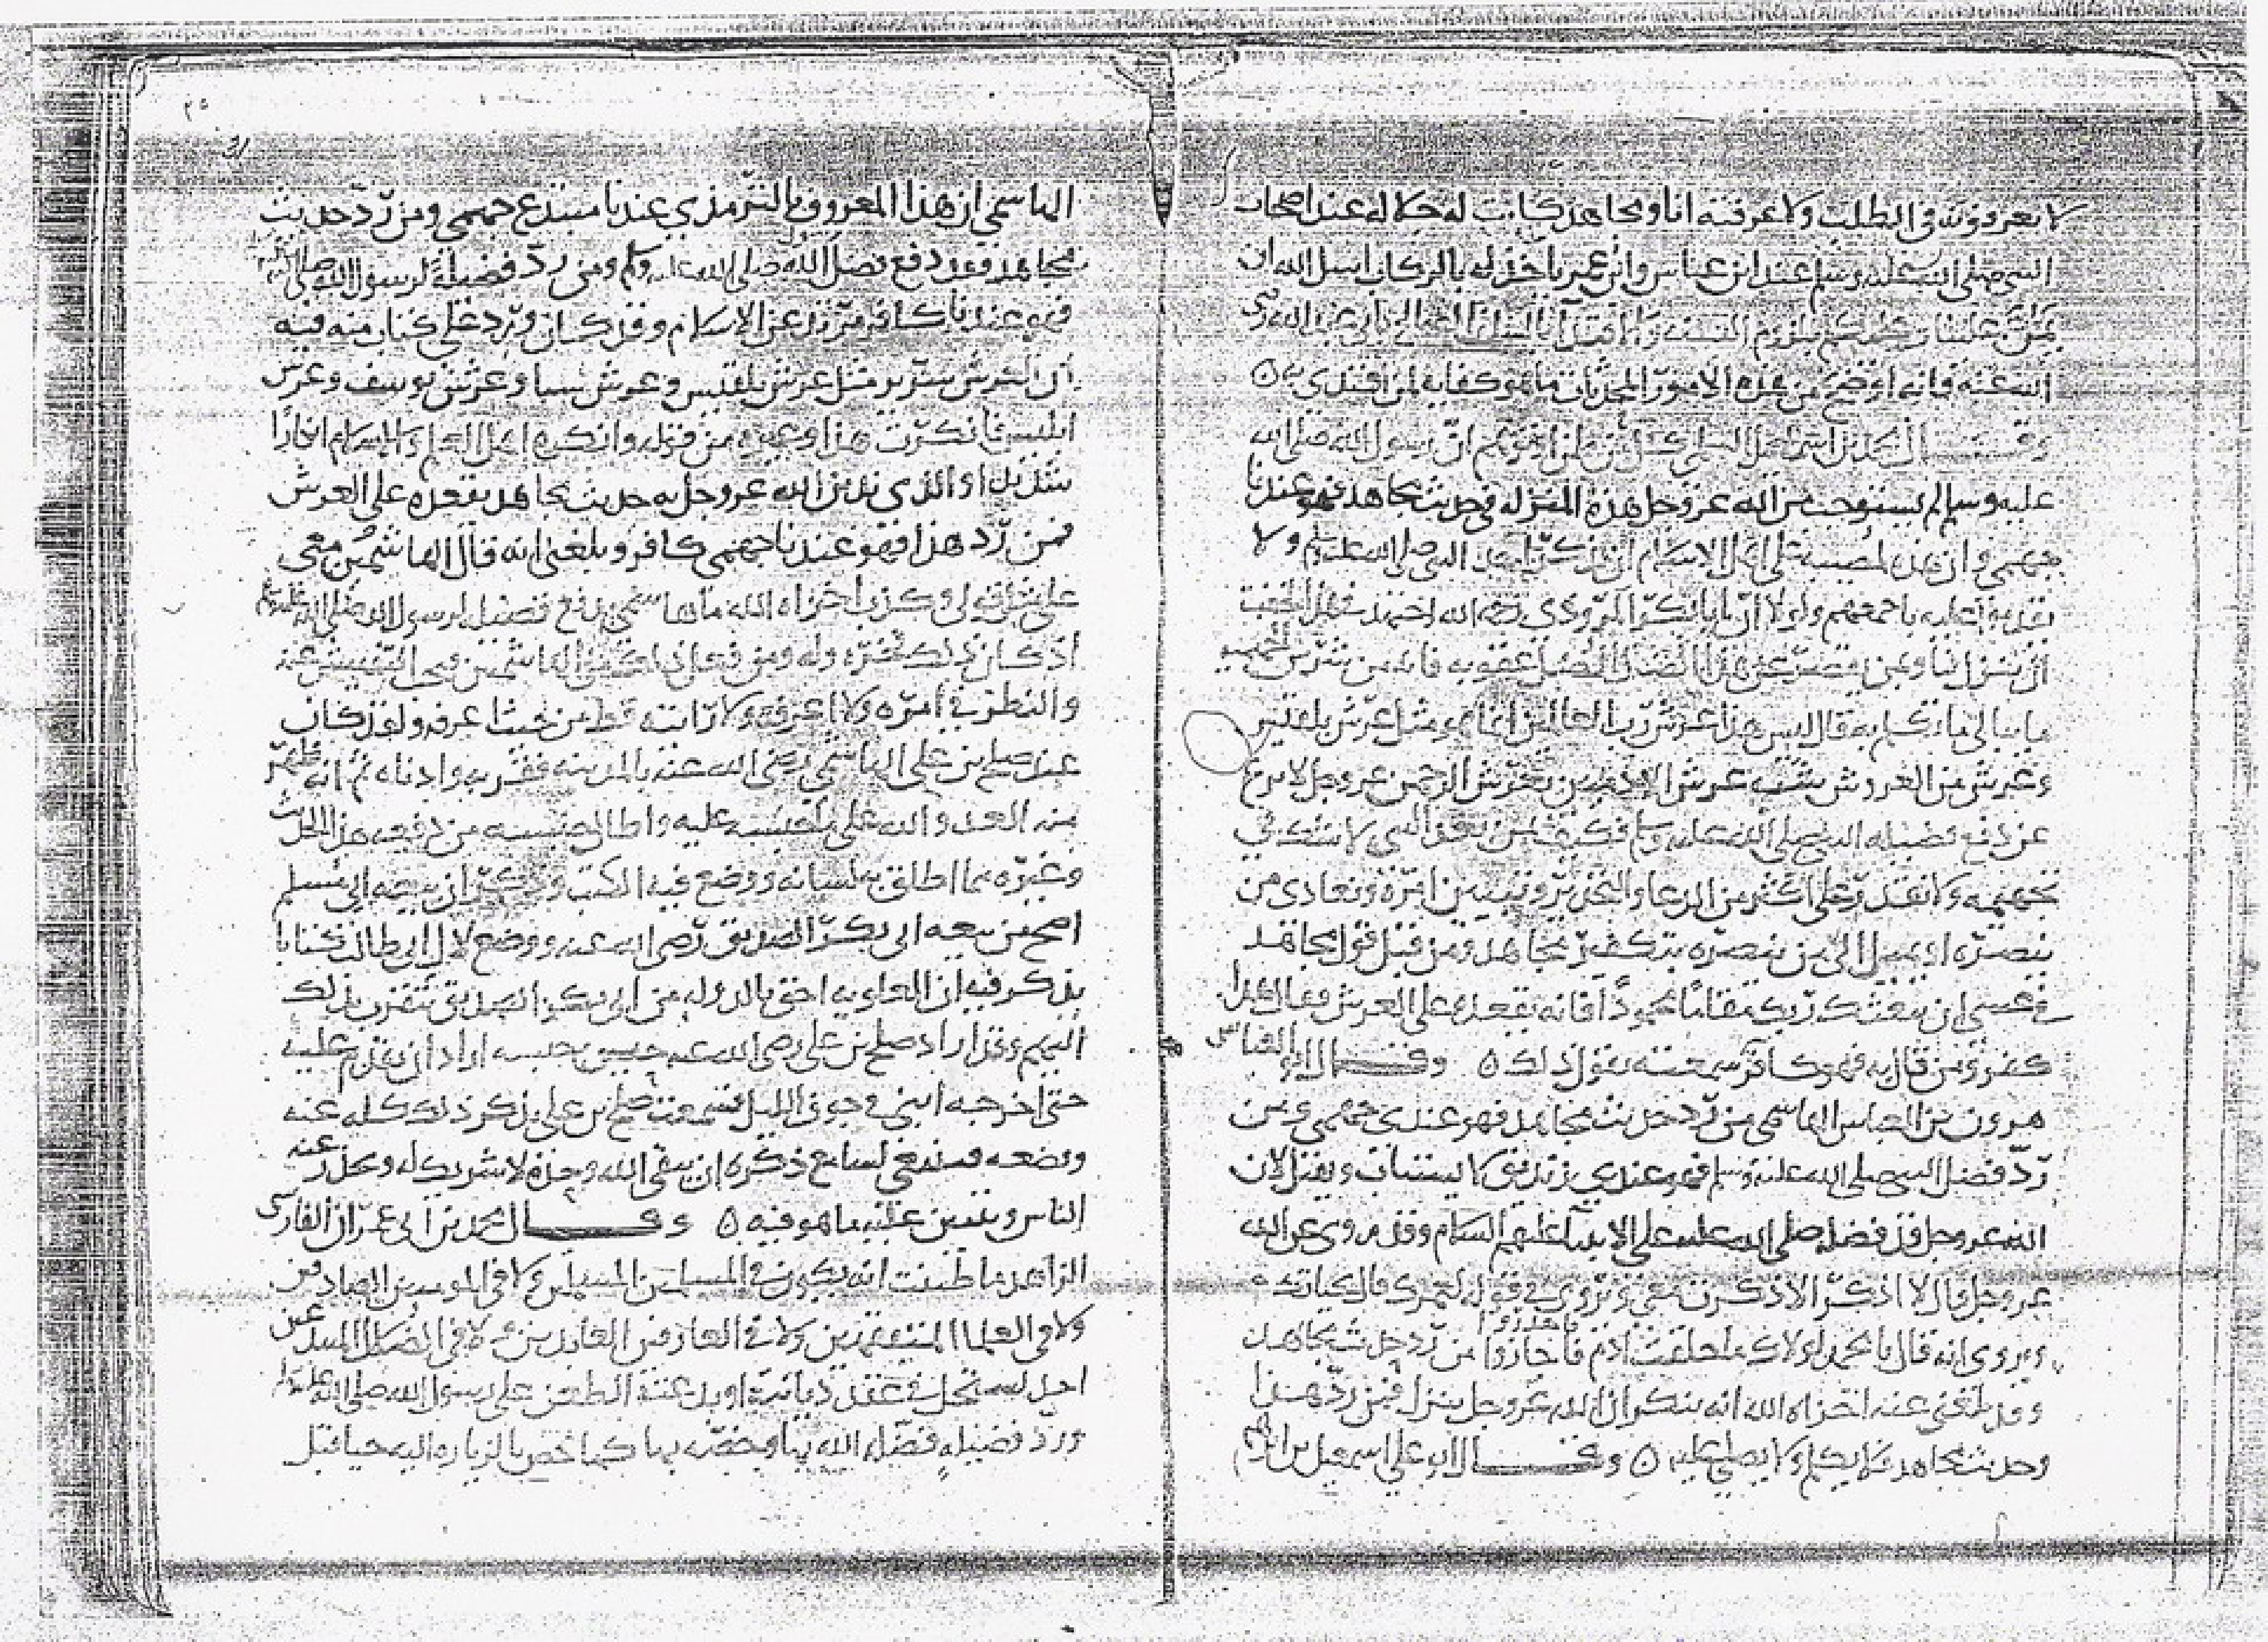 لا يعرفونه في الطلب ولا عرفته انا ومجاهد كانت له جلاله عند اصحاب
النبي صلى الله عليه وسلم عند ابن عباس وابن عمر ياخذ له بالركاب اسل الله ان
يمن علينا وعليكم بلزوم السنه والاقتدا بالسلف الصالح بابي عبد الله رضي
الله عنه فانه اوضح من هذه الامور المحدثات ما هو كفايه لمن اقتدى به ٥
وقال كل من ظن او توهم ان رسول الله صلى الله
عليه وسلم لم يستوجب من الله عز وجل هذه المنزله في حديث مجاهد فهو عندنا
جهمي وان هذه لمصيبة على اهل الاسلام ان يذكر احد النبي صلى الله عليه وسلم ولا
باجمعهم ولولا ان ابا بكر المروذي رحمه الله اجتهد في هذا لخفت
ان ينزل بنا وبمن يقصر عن هذا الضال المضل عقوبه فانه من شر الجهميه
ما يبالي ما تكلم به قال ليس هذا عرش رب العالمين انما هو مثل عرش بلقيس
وعرش من العروش يشبه عرش الادميين بعرش الرحمن عز وجل لا يرع
عن دفع فضيله النبي صلى الله عليه وسلم
تجهمه ولا نقدر على اكثر من الدعا والتحذير وتبيين امره ونعادي من
ينصره او يميل الى من ينصره بتكفير مجاهد ومن قبل قول مجاهد
في عسى ان يبعثك ربك مقاما محمودا قال انه يقعده على العرش فقال هذا
كفر ومن قال به فهو كافر سمعته يقول ذلك ٥ وقال ابو العباس
هرون بن العباس الهاشمي من رد حديث مجاهد فهو عندي جهمي ومن
رد فضل النبي صلى الله عليه وسلم فهو عندي زنديق لا يستتاب ويقتل لان
الله عز وجل قد فضله صلى الله عليه على الانبيا عليهم السلام وقد روي عن الله
عز وجل قال لا اذكر الا ذكرت معي ويروى في قوله لعمرك قال بحياتك
ويروى انه قال يا محمد لولاك ما خلقت ادم فاحذروا من رد حديث مجاهد
وقد بلغني عنه اخزاه الله انه ينكر ان الله عز وجل ينزل فمن رد هذا
وحديث مجاهد فلا يكلم ولا يصلى عليه ٥ وقال ابو علي اسمعيل بن ابرهيم
الهاشمي ان هذا المعروف بالترمذي عندنا مبتدع جهمي ومن رد حديث
مجاهد فقد دفع فضل رسول الله صلى الله عليه وسلم ومن رد فضيلة لرسول الله صلى الله عليه
فهو عندنا كافر مرتد عن الاسلام وقد كان ورد علي كتاب منه فيه
ان العرش سرير مثل عرش بلقيس وعرش سبا وعرش يوسف وعرش
ابليس فانكرت هذا وغيره من قوله وانكره اهل العلم والاسلام انكارا
شديدا والذي ندين الله عز وجل به حديث مجاهد يقعده على العرش
فمن رد هذا فهو عندنا جهمي كافر وبلغني انه قال الهاشميون معي
على قولي وكذب اخزاه الله ما هاشمي يدفع فضيله لرسول الله صلى الله عليه وسلم
اذ كان ذلك فخره وله
والنظر في امره ولا اعرفه ولا رايته قط من حيث اعرفه ولقد كان
عند صلح بن علي الهاشمي رضي الله عنه بالمدينه فقربه وادناه ثم انه ظهر
منه حبسه عليه واطال حبسه من دفعه هذا الحديث
وغيره مما اطلق به لسانه ووضع فيه الكتب وذكر ان بيعه ابي مسلم
اصح من بيعه ابي بكر الصديق رضي الله عنه ووضع لال ابي طالب كتابا
يذكر فيه ان العلويه احق بالدوله من ابي بكر الصديق يتقرب بذلك
اليهم وقد اراد صلح بن علي رضي الله عنه حين حبسه اراد ان يقدم عليه
حتى اخرجه ابني في جوف الليل فسمعت صلح بن علي يذكر ذلك كله عنه
ويضعه فينبغي لسامع ذكره ان يتقي الله وحده لا شريك له ويحذر عنه
الناس ويتبين عليه ما هو فيه ٥ وقال محمد بن ابي عمران الفارسي
الزاهد ما ظننت انه يكون في المسلمين ولا في المومنين الصادقين
ولا في العلما المتقدمين ولا في العارفين العابدين ولا في الضلال المبتدعين
احد يستحل في عقد ديانته او بدعته الطعن على رسول الله صلى الله عليه وسلم
ورد فضيله فضله الله بها وخصه بها كما خص بالزياره اليه حيا قبل